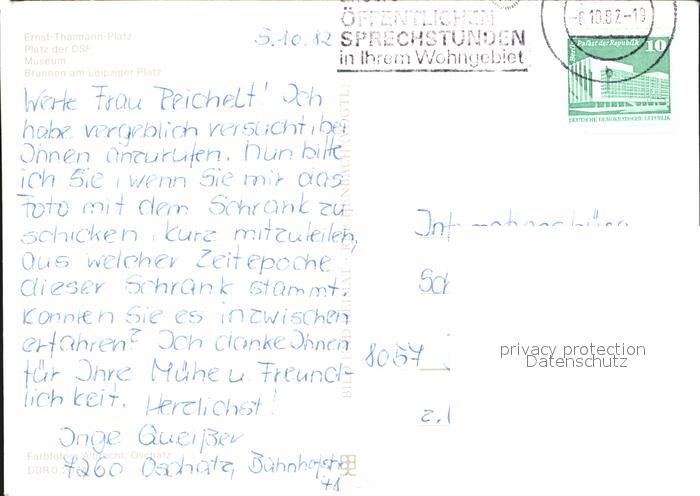 Ernst-Thälmann-Platz
Platz der DSF
Museum
Brunnen am Leipziger Platz
5.10.82
ÖFFENTLICHEN
SPRECHSTUNDEN
in Ihrem Wohngebiet
-6.10.82-19
b
Palast der Republik
10
DEUTSCHE DEMOKRATISCHE REPUBLIK
Werte Frau Reichelt! Ich
habe vergeblich versucht, bei
Ihnen anzurufen. Nun bitte
ich Sie, wenn Sie mir das
Foto mit dem Schrank zu
schicken, kurz mitzuteilen,
aus welcher Zeitepoche
dieser Schrank stammt.
Konnten Sie es inzwischen
erfahren? Ich danke Ihnen
für Ihre Mühe u. Freund-
lichkeit. Herzlichst!
Inge Queißer
7260 Oschatz, Bahnhofstr.
48
Farbfotos: Albrecht, Oschatz
8057
privacy protection
Datenschutz